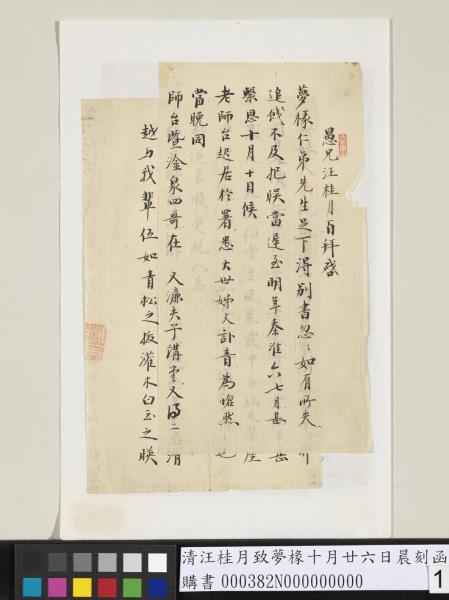 愚兄汪桂月拜啓
夢椽仁弟先生足下得別書忽忽如有所失
追餞不及把袂當遲至明年秦淮六七月
縈思十月十日候
老師台起居於署悉大世姊丈訃音為愴然
當晚同
師台暨淦泉四哥在又濂夫子講堂又得二清
越与我輩伍如青松之拔灌木白玉之映
清汪桂月致夢椽十月廿六日晨刻函
購書 000382N000000000
1